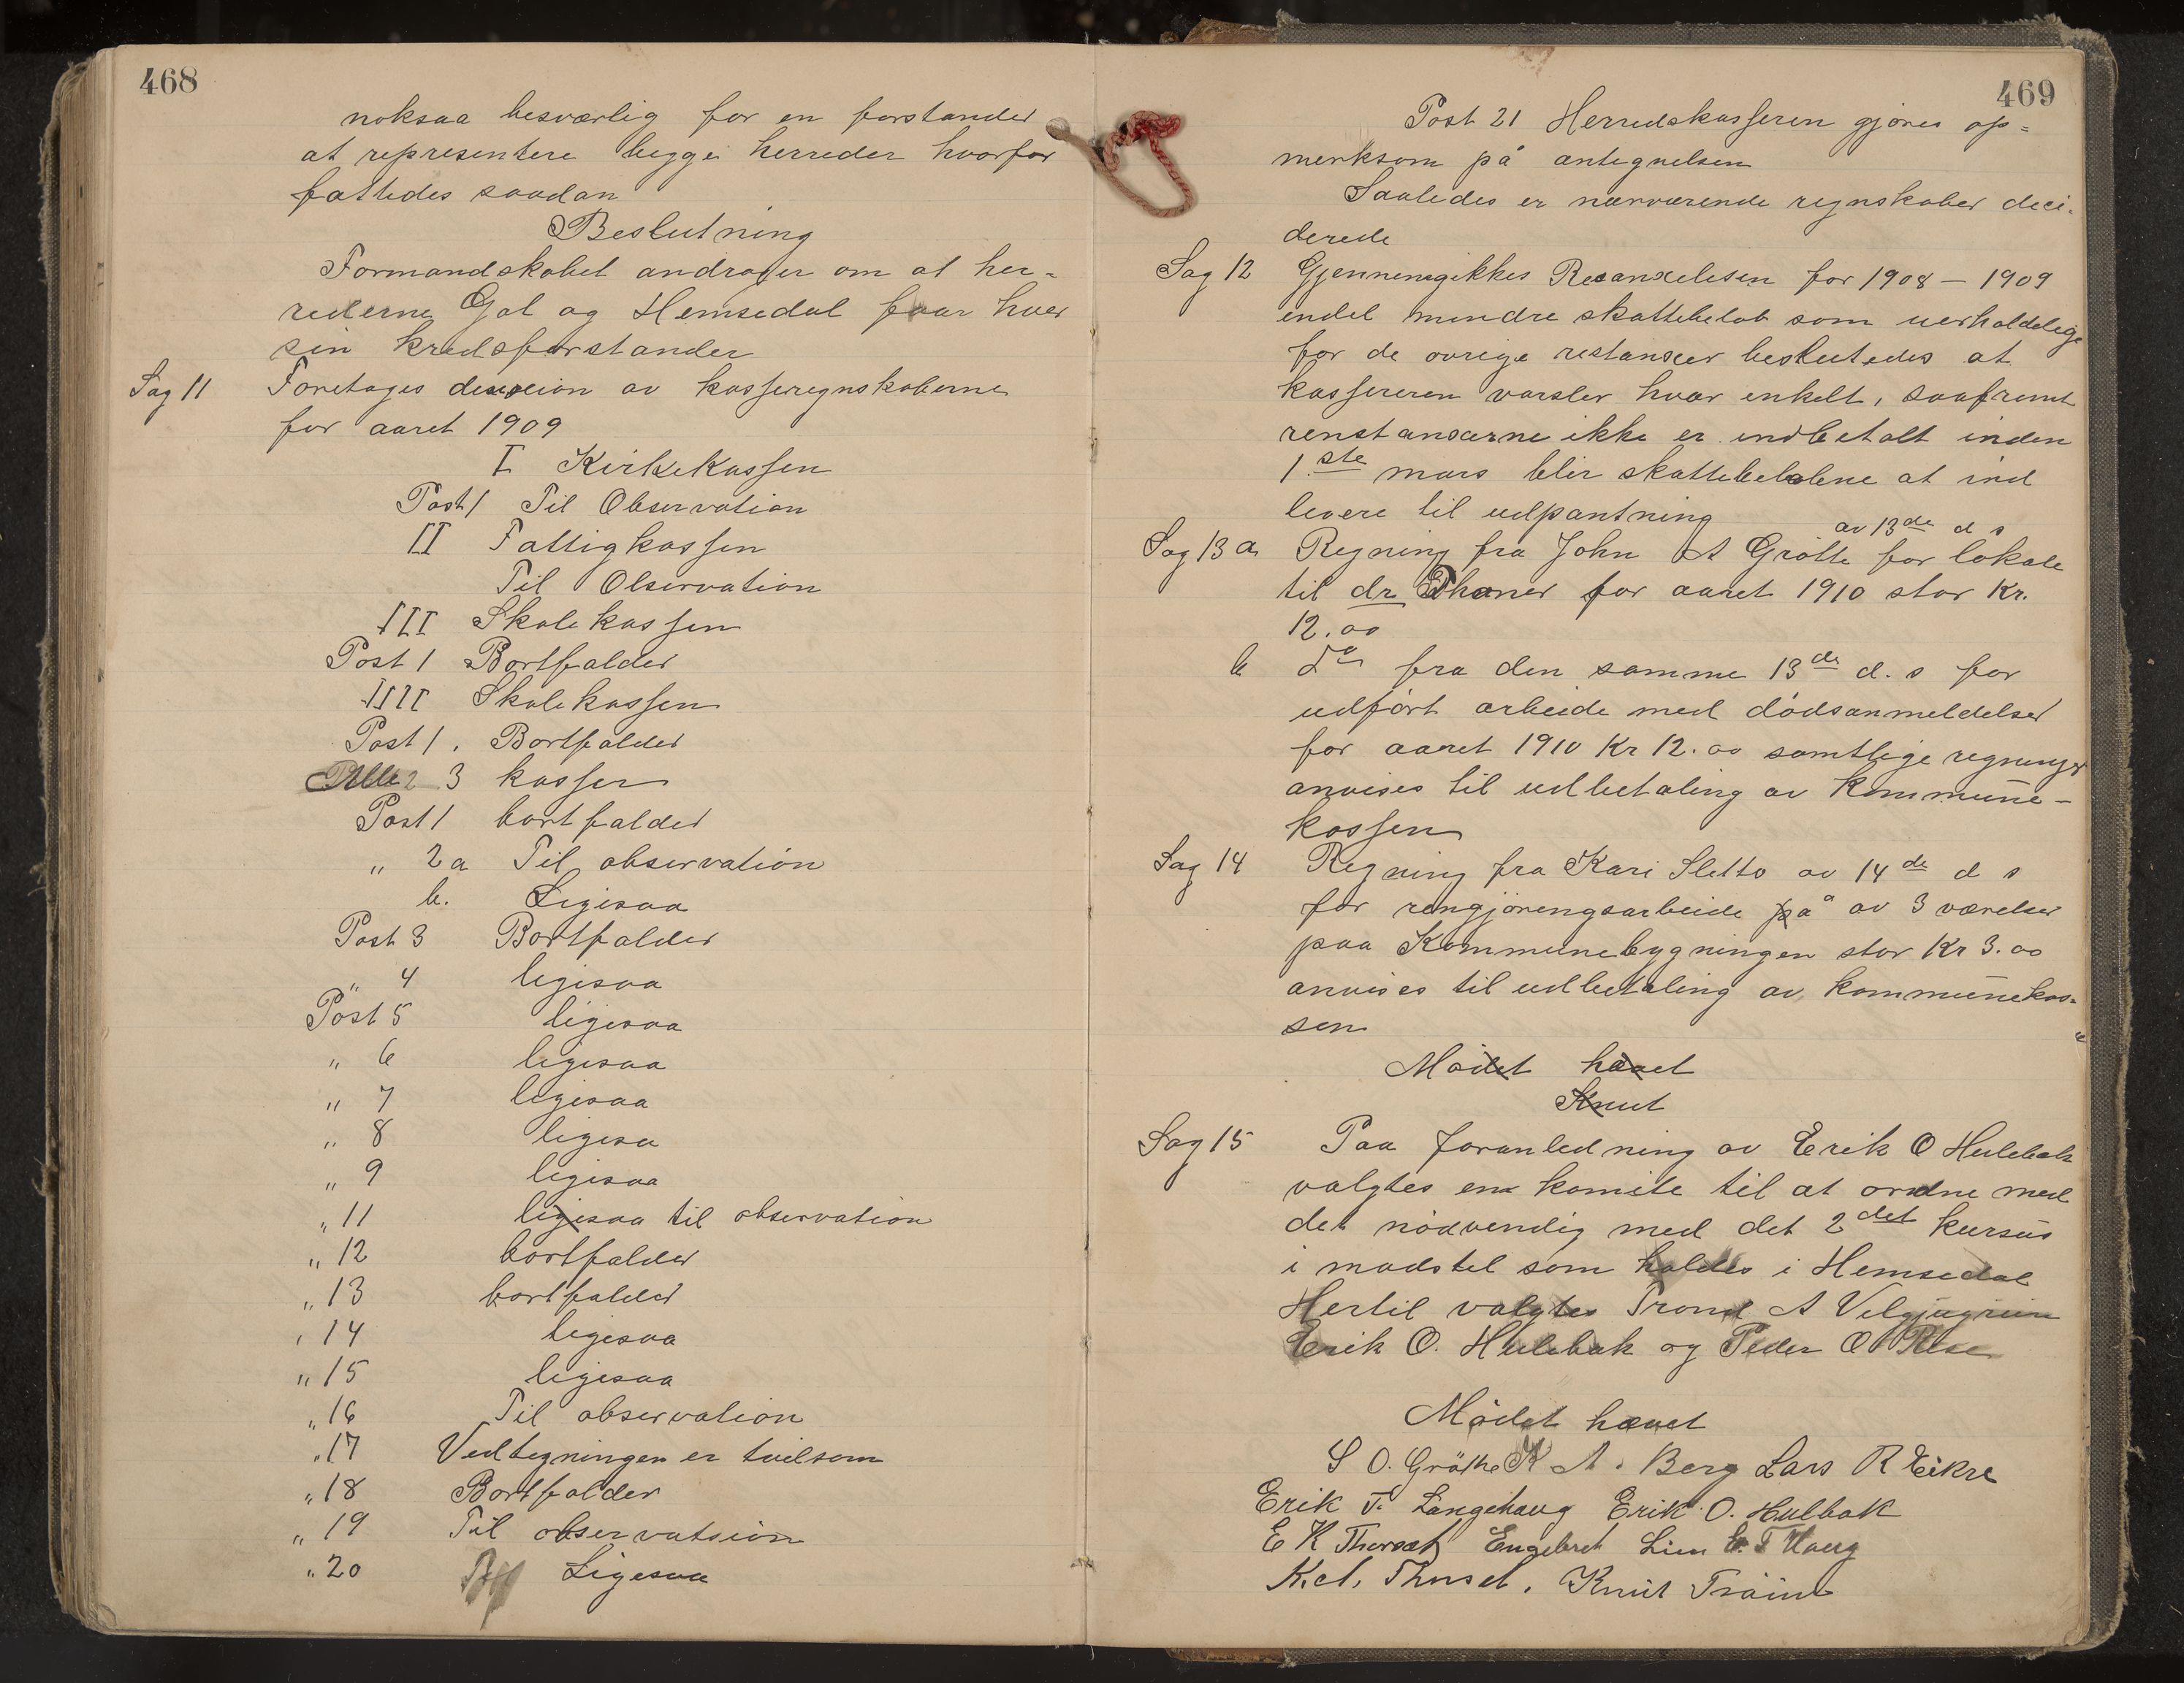 468
noksaa besværlig for en forstander
at representere begge herreder hvorfor
fattedes saadan
Beslutning
Formandskabet andrager om at her=
rederne Gol og Hemsedal faar hver
sin kredsforstander
Sag 11 Foretages av kasseregnskaberne
for aaret 1909
I Kirkekassen
Post 1 Til Observation
II Fattigkassen
Til Observation
III Skolekassen
Post 1 Bortfalder
IIII Skolekassen
Post 1. Bortfalder
Alle 3 kasser
Post 1 bortfalder
" 2a Til observation
b. Ligesaa
Post 3 Bortfalder
" 4 ligesaa
Post 5 ligesaa
" 6 ligesaa
" 7 ligesaa
" 8 ligesa
" 9 ligesaa
" 11 ligesaa til observation
" 12 bortfalder
" 13 bortfalder
" 14 ligesaa
" 15 ligesaa
" 16 Til observation
" 17 Vedtegningen er tvilsom
" 18 Bortfalder
" 19 Til observatsion
" 20 Ligesaa
469
Post 21 Herredskasseren gjøres op=
merksom på antegnelsen
Saaledes er nærværende regnskaber deci-
derede
Sag 12 Gjennemgikkes for 1908 – 1909
endel mindre skattebeløb som uerholdelige
for de øvrige restanser besluttedes at
kassereren varsler hver enkelt, saafremt
renstanserne ikke er indbetalt inden
1.ste mars blir skattebeløbene at ind
levere til udpantning
av 13de d s
Sag 13 a Regning fra John A Grøtte for lokale
til dr Thaner for aaret 1910 stor Kr.
12.00
b Do fra den samme 13de d. s for
udført arbeide med dødsanmeldelser
for aaret 1910 Kr 12.00 samtlige regninger
anvises til udbetaling av Kommune-
kassen
Sag 14 Regning fra Kari Sletto av 14de d s
for rengjøringsarbeide på av 3 værelser
paa Kommunebygningen stor Kr 3.00
anvises til udbetaling av kommunekas=
sen
Mødet hævet
Knut
Sag 15 Paa foranledning av Erik O Hulebak
valgtes en komite til at ordne med
det nødvendig med det 2det kursus
i madstel som holdes i Hemsedal
Hertil valgtes Trond A Velgjugrim
Erik O. Hulebak og Peder O
Mødet hævet
S O. Grøthe K A. Berg Lars R Eikre
Erik T. Langehaug Erik O. Hulbak
E K Thorset Engebret Lien E. T Haug
K.A. Thuset. Knut Trøim